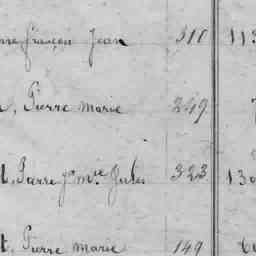 françois Jean 310 113
Pierre marie 249
t, Pierre jn mie Jules 323 130
t, Pierre marie 149